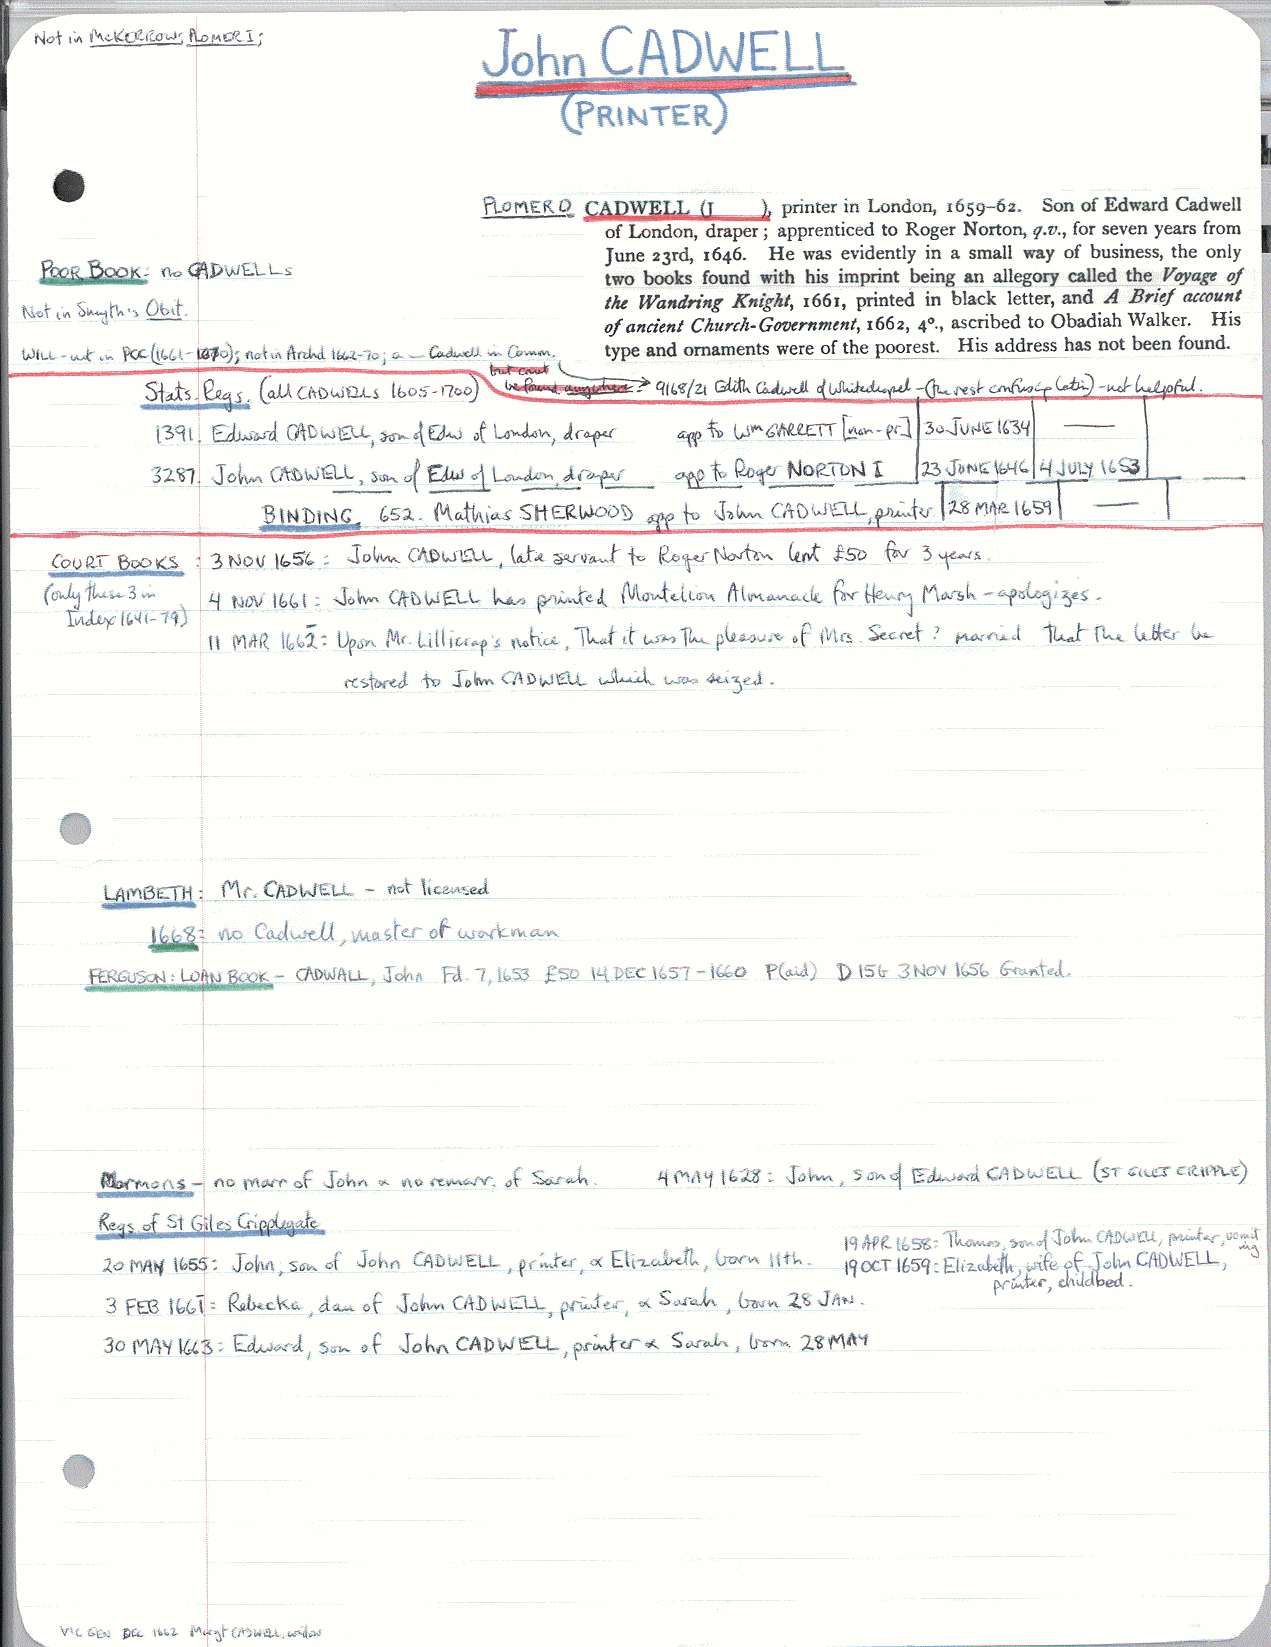 Not in McKERROW; PLOMER I;
John CADWELL
(PRINTER)
PLOMER O CADWELL (J      ), printer in London, 1659–62. Son of Edward Cadwell
of London, draper; apprenticed to Roger Norton, q.v., for seven years from
June 23rd, 1646. He was evidently in a small way of business, the only
two books found with his imprint being an allegory called the Voyage of
the Wandring Knight, 1661, printed in black letter, and A Brief account
of ancient Church-Government, 1662, 4°., ascribed to Obadiah Walker. His
type and ornaments were of the poorest. His address has not been found.
POOR BOOK: no CADWELLs
Not in Smyth's Obit.
WILL - not in PCC (1661-1670); not in Archd 1662-70; a — Cadwell in Comm.
but can't be found anywhere → 9168/21 Edith Cadwell of Whitechapel - (the rest confusing latin) - not helpful.
Stats. Regs. (all CADWELLs 1605-1700)
1391. Edward CADWELL, son of Edw of London, draper app to Wm GARRETT [non-pr] 30 JUNE 1634 —
3287. John CADWELL, son of Edw of London, draper app to Roger NORTON I 23 JUNE 1646 4 JULY 1653
BINDING 652. Mathias SHERWOOD app to John CADWELL, printer 28 MAR 1659 —
COURT BOOKS: 3 NOV 1656: John CADWELL, late servant to Roger Norton lent £50 for 3 years.
(only these 3 in Index 1641-79)
4 NOV 1661: John CADWELL has printed Montelion Almanack for Henry Marsh - apologizes.
11 MAR 1662: Upon Mr. Lillicrap's notice, That it was the pleasure of Mrs. Secret? married That the letter be
restored to John CADWELL which was seized.
LAMBETH: Mr. CADWELL - not licensed
1668: no Cadwell, master of workman
FERGUSON: LOAN BOOK - CADWALL, John Fd. 7, 1653 £50 14 DEC 1657-1660 P(aid) D 15G 3 NOV 1656 Granted.
Mormons - no marr of John & no remarr. of Sarah. 4 MAY 1628: John, son of Edward CADWELL (ST GILES CRIPPLE)
Regs of St Giles Cripplegate
20 MAY 1655: John, son of John CADWELL, printer, & Elizabeth, born 11th.
19 APR 1658: Thomas, son of John CADWELL, printer, vomiting
19 OCT 1659: Elizabeth, wife of John CADWELL, printer, childbed.
3 FEB 1661: Rebecka, dau of John CADWELL, printer, & Sarah, born 28 JAN.
30 MAY 1663: Edward, son of John CADWELL, printer & Sarah, born 28 MAY
VIC GEN DEC 1662 Margt CADWELL, widow